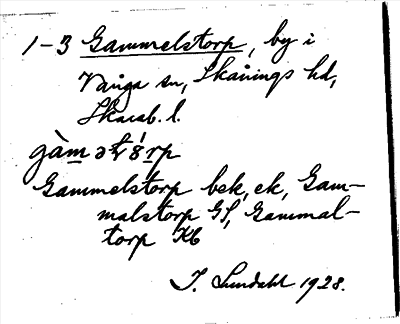 1-3 Gammelstorp, by i
Vånga sn, Skånings hd,
Skarab. l.
Gammelstorp bek, ek, Gam-
malstorp GS, Gammal-
torp Kb
I. Lundahl 1928.